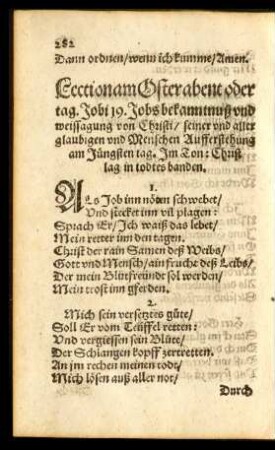 282
Dann ordnen/wenn ich kumme/Amen.
Lection am Osterabent oder
tag. Jobi 19. Jobs bekanntnuß vnd
weissagung von Christi/ seiner vnd aller
glaubigen vnd Menschen Aufferstehung
am Jüngsten tag. Im Ton: Christ
lag in todtes banden.
1.
ALs Job inn nöten schwebet/
Vnd stecket inn vil plagen:
Sprach Er/Ich waiß das lebet/
Mein retter inn den tagen.
Christ der rain Samen deß Weibs/
Gott vnd Mensch/ain frucht deß Leibs/
Der mein Blutfreündt sol werden/
Mein trost inn gferden.
2.
Mich sein versetztes güte/
Soll Er vom Teüffel retten:
Vnd vergiessen sein Blüte/
Der Schlangen kopff zertretten.
An jm rechen meinen todt/
Mich lösen auß aller not/
Durch